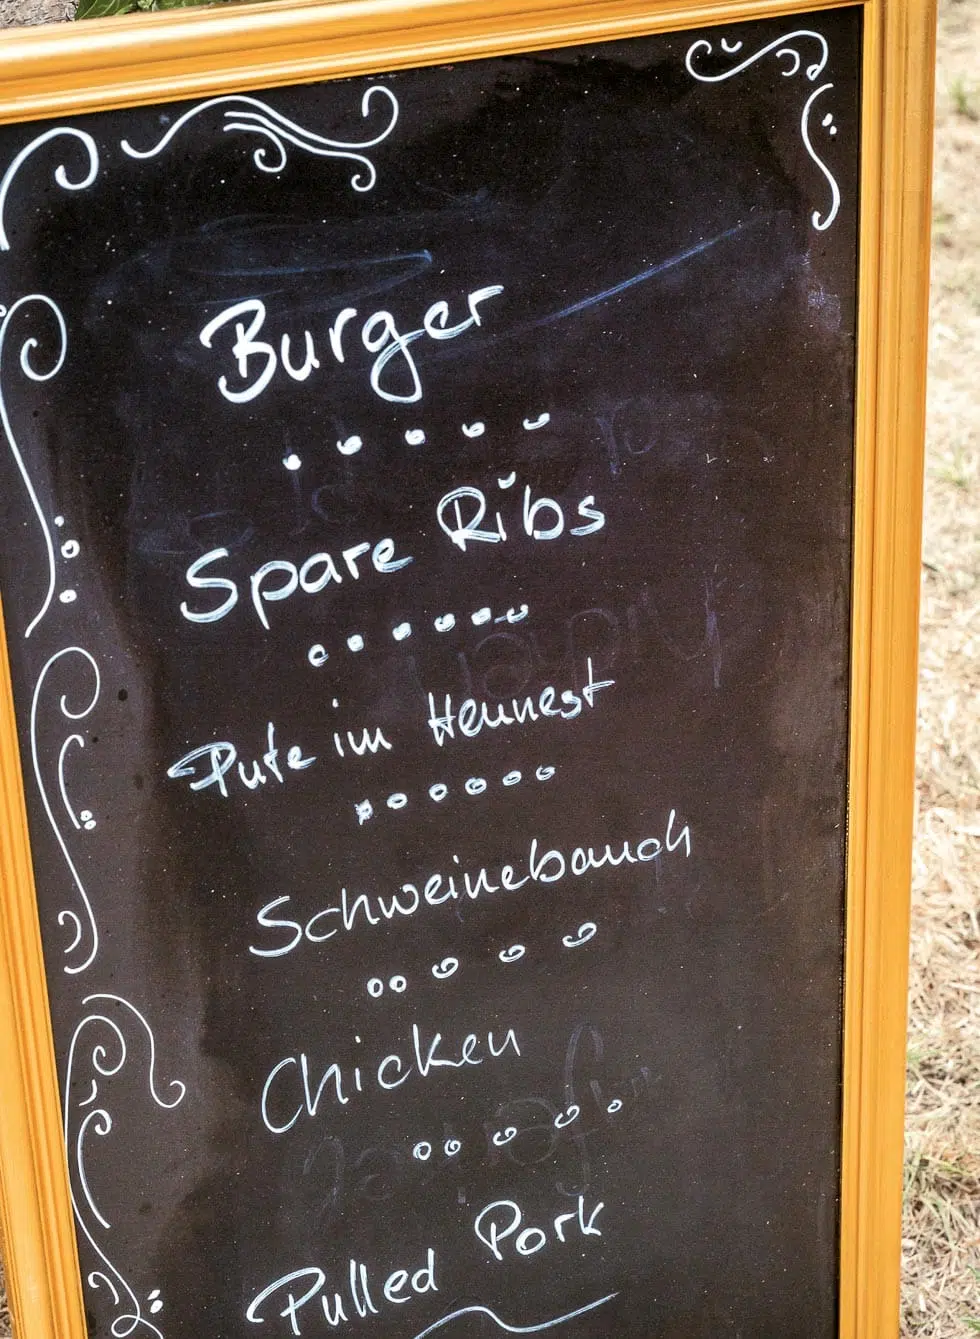 Burger
Spare Ribs
Pute im Heunest
Schweinebauch
Chicken
Pulled Pork